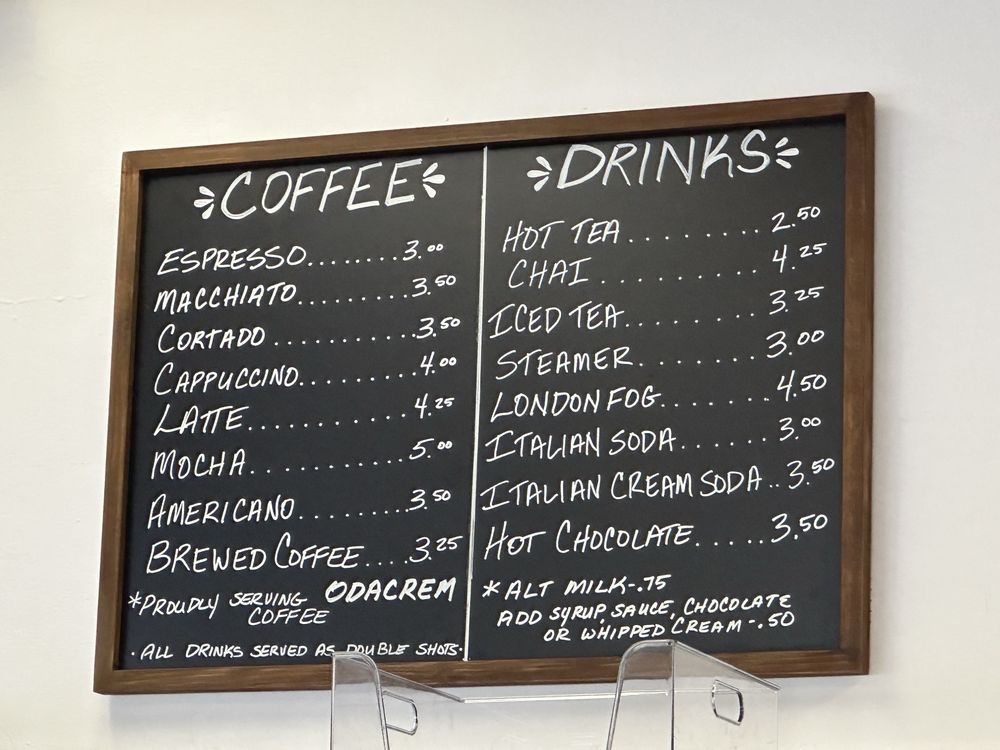 COFFEE
ESPRESSO........3.00
MACCHIATO.........3.50
CORTADO ...........3.50
CAPPUCCINO.........4.00
LATTE............4.25
MOCHA............5.00
AMERICANO.........3.50
BREWED COFFEE....3.25
*PROUDLY SERVING ODACREM
COFFEE
·ALL DRINKS SERVED AS DOUBLE SHOTS·
DRINKS
HOT TEA.........2.50
CHAI..........4.25
ICED TEA.........3.25
STEAMER........3.00
LONDON FOG.......4.50
ITALIAN SODA......3.00
ITALIAN CREAM SODA..3.50
HOT CHOCOLATE.....3.50
*ALT MILK-.75
ADD SYRUP, SAUCE, CHOCOLATE
OR WHIPPED CREAM-.50